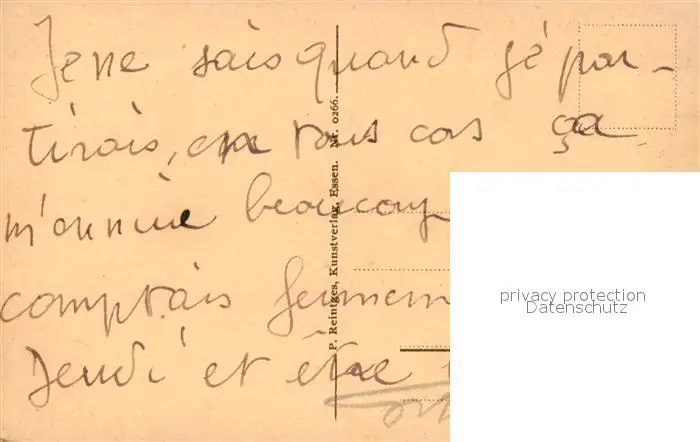 Je ne sais quand je par-
tirais, en tous cas ça
m'ennuie beaucoup
comptais
Jeudi et être
P. Reintges, Kunstverlag, Essen. Nr. 0266.
privacy protection
Datenschutz